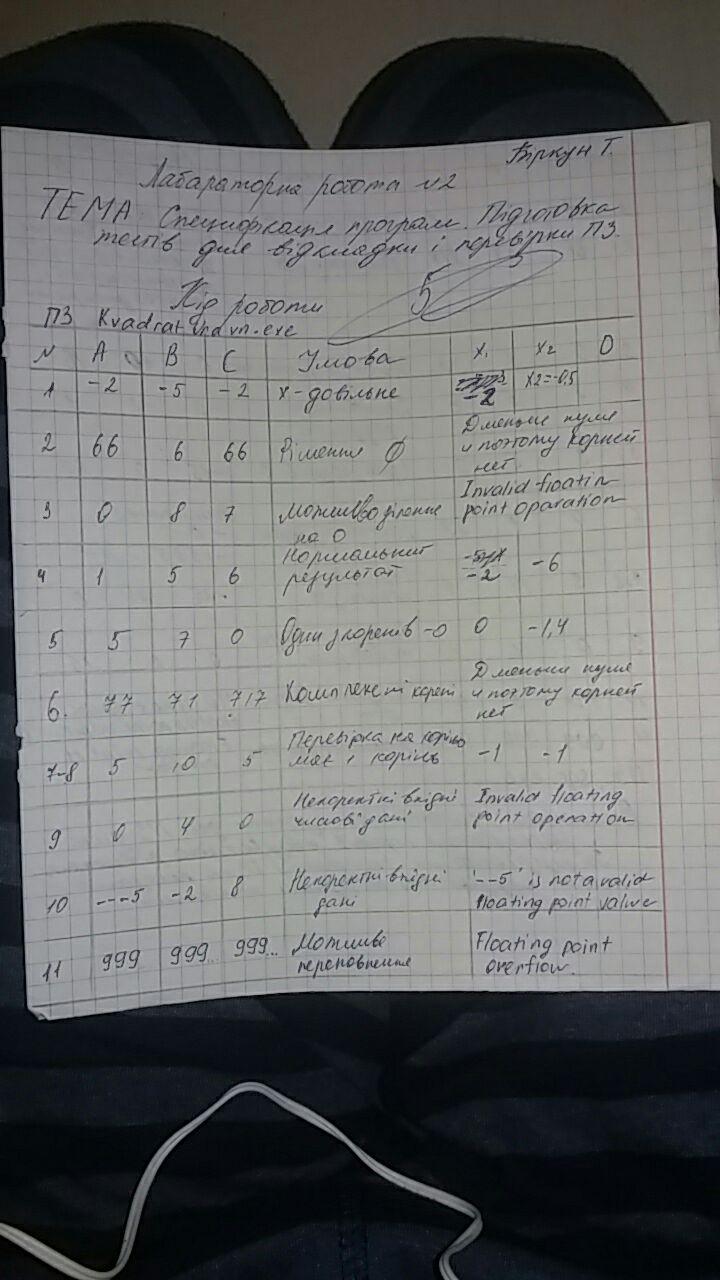 Біркун Т.
Лабараторна робота №2
ТЕМА: Специфікація програм. Підготовка
тестів для відкладки і перевірки ПЗ.
5
Хід роботи
ПЗ Kvadrat
N A B C Умова X1 X2 D
1 -2 -5 -2 x-довільне -2 X2=-0,5
2 66 6 66 Рішення ∅ D меньше нуля
и поэтому корней
нет
3 0 8 7 Можливо ділення
на 0 Invalid floatin
point oparation
4 1 5 6 Нормальний
результат -2 -6
5 5 7 0 Один з коренів -0 0 -1,4
6. 77 71 717 Комплексні корені D меньши нуля
и поэтому корней
нет
7-8 5 10 5 Перевірка на корінь
має 1 корінь -1 -1
9 0 4 0 Некоректні вхідні
числові дані Invalid floating
point operation
10 ---5 -2 8 Некоректні вхідні
дані '--5' is not a valid
floating point valive
11 999 999.. 999... Можливе
переповнення Floating point
overflow.